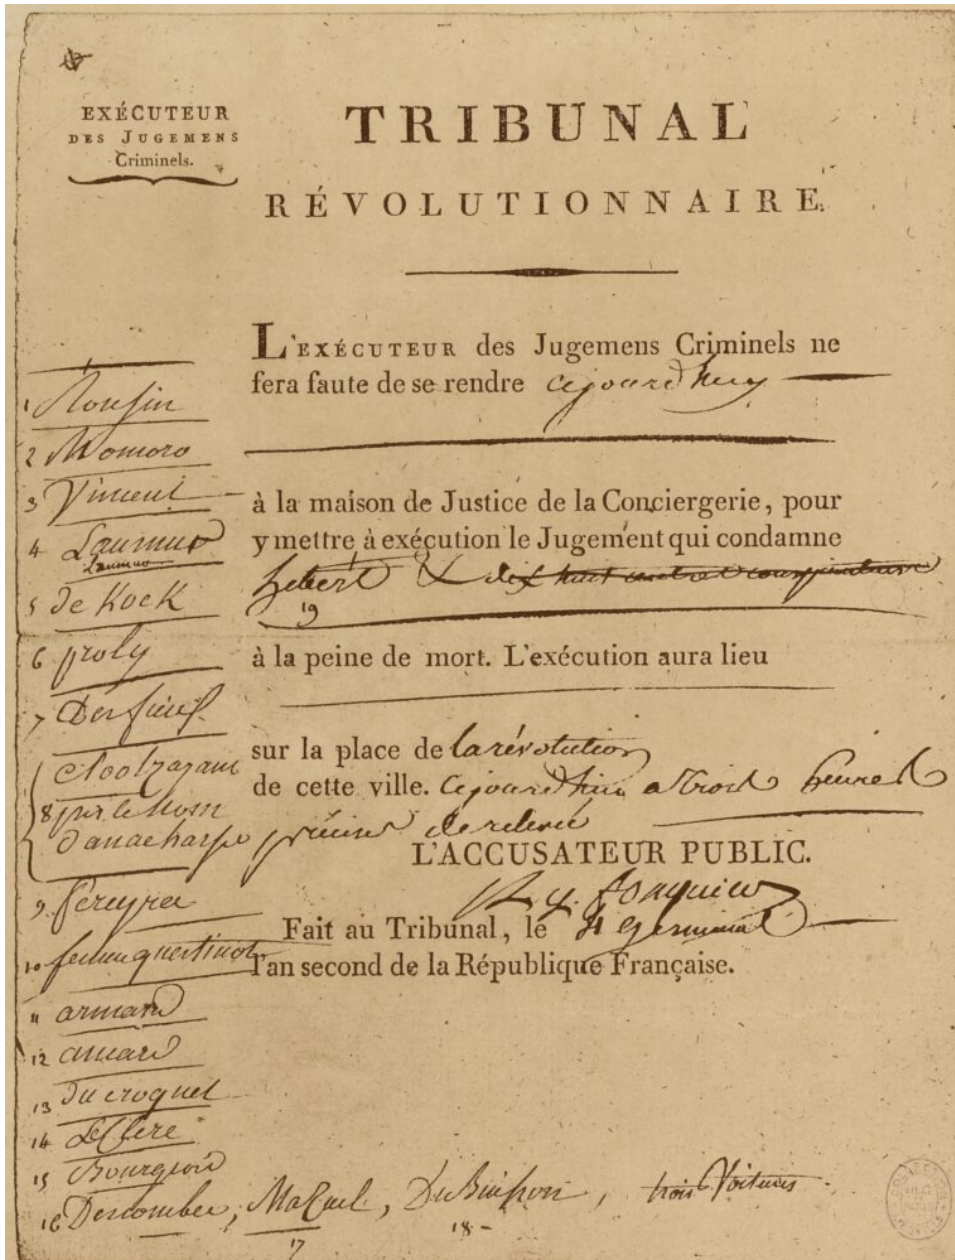 EXÉCUTEUR
DES JUGEMENS
Criminels.
TRIBUNAL
RÉVOLUTIONNAIRE.
L'EXÉCUTEUR des Jugemens Criminels ne
fera faute de se rendre cejourd'huy
à la maison de Justice de la Conciergerie, pour
y mettre à exécution le Jugement qui condamne
hebert & dix huit autres conspirateurs
19
à la peine de mort. L'exécution aura lieu
sur la place de la révolution
de cette ville. cejourd'hui a trois heures
précises de relevée
L'ACCUSATEUR PUBLIC.
A. q. fouquier
Fait au Tribunal, le 4 germinal
l'an second de la République Française.
1 Ronsin
2 Momoro
3 Vincent
4 Laumur
Laumur
5 de Kock
6 proly
7 Desfieux
8 clootz
par le nom
d'anacharse
9 Pereyra
10 femme quetineau
11 armand
12 ancard
13 ducroquet
14 Leclerc
15 Bourgeois
16 Descombes, Mazuel, Dubuisson, trois Voitures
17
18